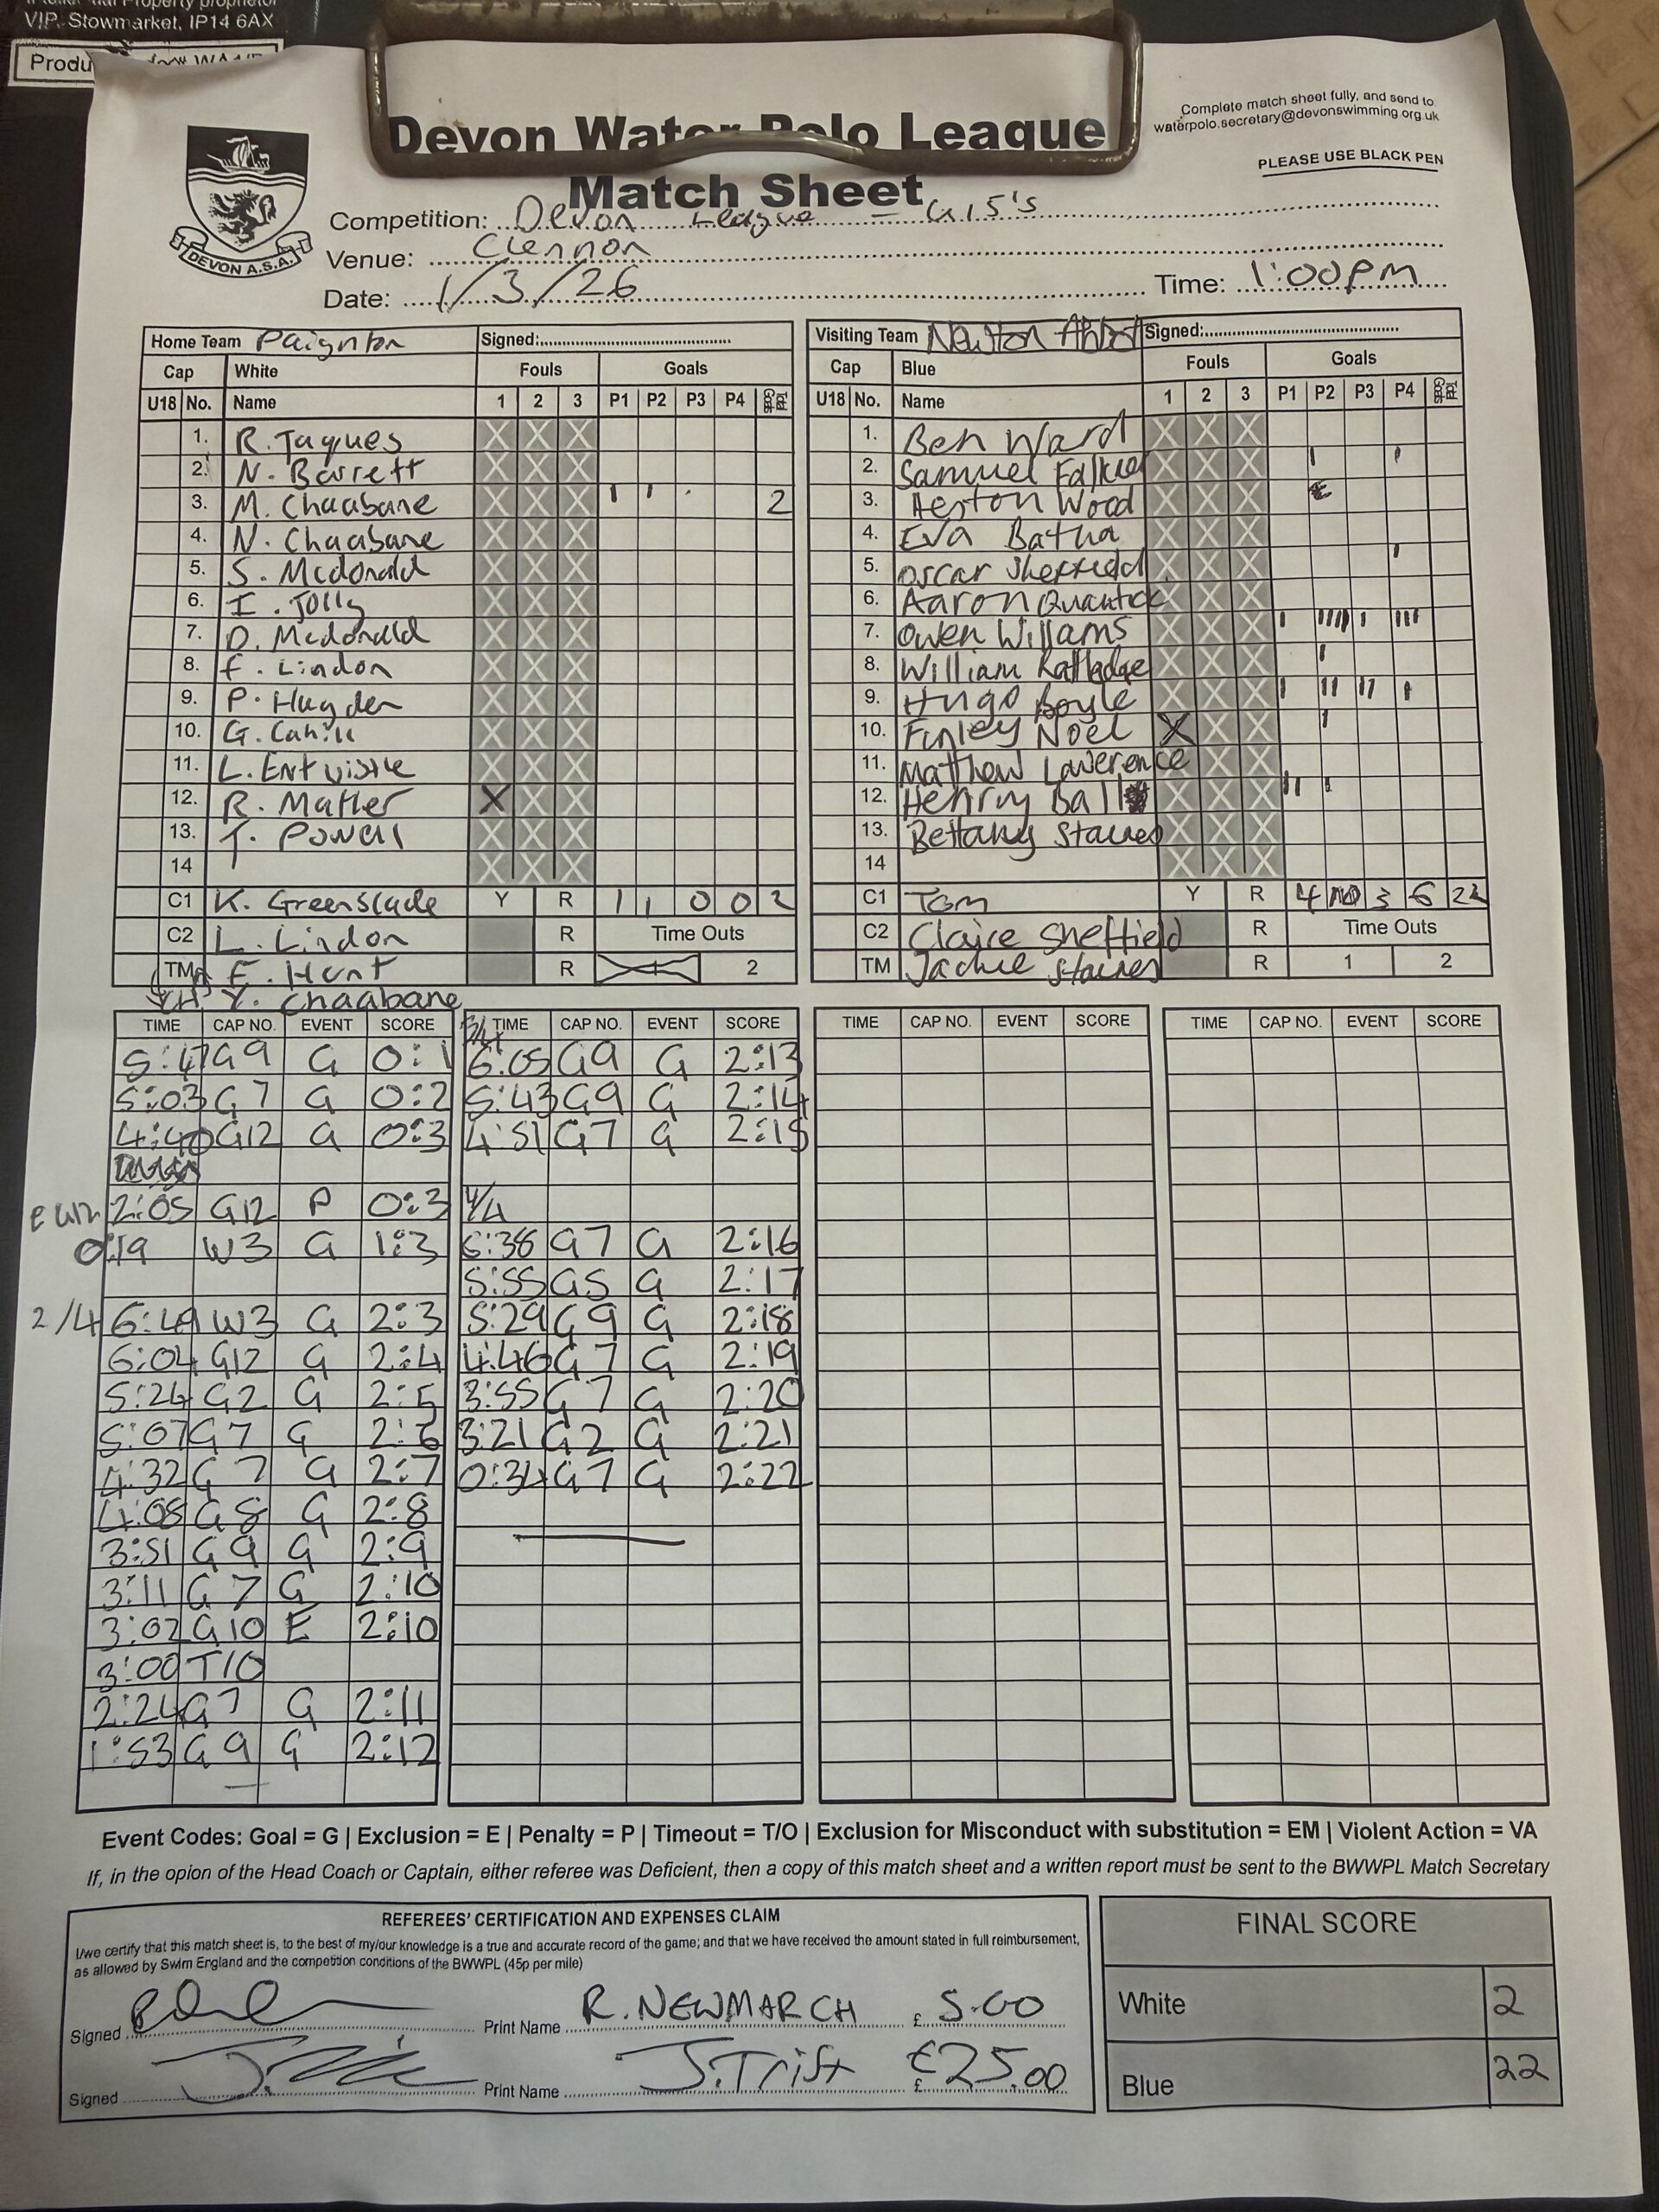 VIP, Stowmarket, IP14 6AX
Produ
Complete match sheet fully, and send to
waterpolo.secretary@devonswimming.org.uk
PLEASE USE BLACK PEN
Devon Water Polo League
Match Sheet
DEVON A.S.A.
Competition: Devon League - U15's
Venue: Clennon
Date: 1/3/26 Time: 1:00PM
Home Team Paignton Signed:
Cap White Fouls Goals
U18 No. Name 1 2 3 P1 P2 P3 P4 Total Goals
1. R. Jaques X X X
2. N. Barrett X X X
3. M. Chaabane X X X I I 2
4. N. Chaabane X X X
5. S. Mcdonald X X X
6. I. Jolly X X X
7. D. Mcdonald X X X
8. F. Lindon X X X
9. P. Hayden X X X
10. G. Cahill X X X
11. L. Entwistle X X X
12. R. Mather X X X
13. T. Powell X X X
14 X X X
C1 K. Greenslade Y R 1 1 0 0 2
C2 L. Lindon R Time Outs
TM E. Hunt R 1 2
Y. Chaabane
Visiting Team Newton Abbot Signed:
Cap Blue Fouls Goals
U18 No. Name 1 2 3 P1 P2 P3 P4 Total Goals
1. Ben Ward X X X
2. Samuel X X X I I
3. Wood X X X
4. Eva Batha X X X
5. Oscar Sheffield X X X I
6. Aaron Quantick X X X
7. Owen Williams X X X I IIII I III
8. William X X X I
9. Hugo Boyle X X X I II II I
10. Finley Noel X X X I
11. Mathew Lawerence X X
12. Henry Ball X X X II I
13. Bethany Staines X X X
14 X X X
C1 Tom Y R 4 3 6 22
C2 Claire Sheffield R Time Outs
TM Jackie Staines R 1 2
TIME CAP NO. EVENT SCORE
5:47 G9 G 0:1
5:03 G7 G 0:2
4:40 G12 G 0:3
E W12 2:05 G12 P 0:3
0:19 W3 G 1:3
2/4 6:49 W3 G 2:3
6:04 G12 G 2:4
5:24 G2 G 2:5
5:07 G7 G 2:6
4:32 G7 G 2:7
4:08 G8 G 2:8
3:51 G9 G 2:9
3:11 G7 G 2:10
3:02 G10 E 2:10
3:00 T/O
2:24 G7 G 2:11
1:53 G9 G 2:12
3/4 TIME CAP NO. EVENT SCORE
6:05 G9 G 2:13
5:43 G9 G 2:14
4:51 G7 G 2:15
4/4
6:38 G7 G 2:16
5:55 G5 G 2:17
5:29 G9 G 2:18
4:46 G7 G 2:19
3:55 G7 G 2:20
3:21 G2 G 2:21
0:34 G7 G 2:22
TIME CAP NO. EVENT SCORE
TIME CAP NO. EVENT SCORE
Event Codes: Goal = G | Exclusion = E | Penalty = P | Timeout = T/O | Exclusion for Misconduct with substitution = EM | Violent Action = VA
If, in the opion of the Head Coach or Captain, either referee was Deficient, then a copy of this match sheet and a written report must be sent to the BWWPL Match Secretary
REFEREES' CERTIFICATION AND EXPENSES CLAIM
I/we certify that this match sheet is, to the best of my/our knowledge is a true and accurate record of the game; and that we have received the amount stated in full reimbursement,
as allowed by Swim England and the competition conditions of the BWWPL (45p per mile)
Signed Print Name R. NEWMARCH £ 5.00
Signed Print Name J. Trift £ £25.00
FINAL SCORE
White 2
Blue 22